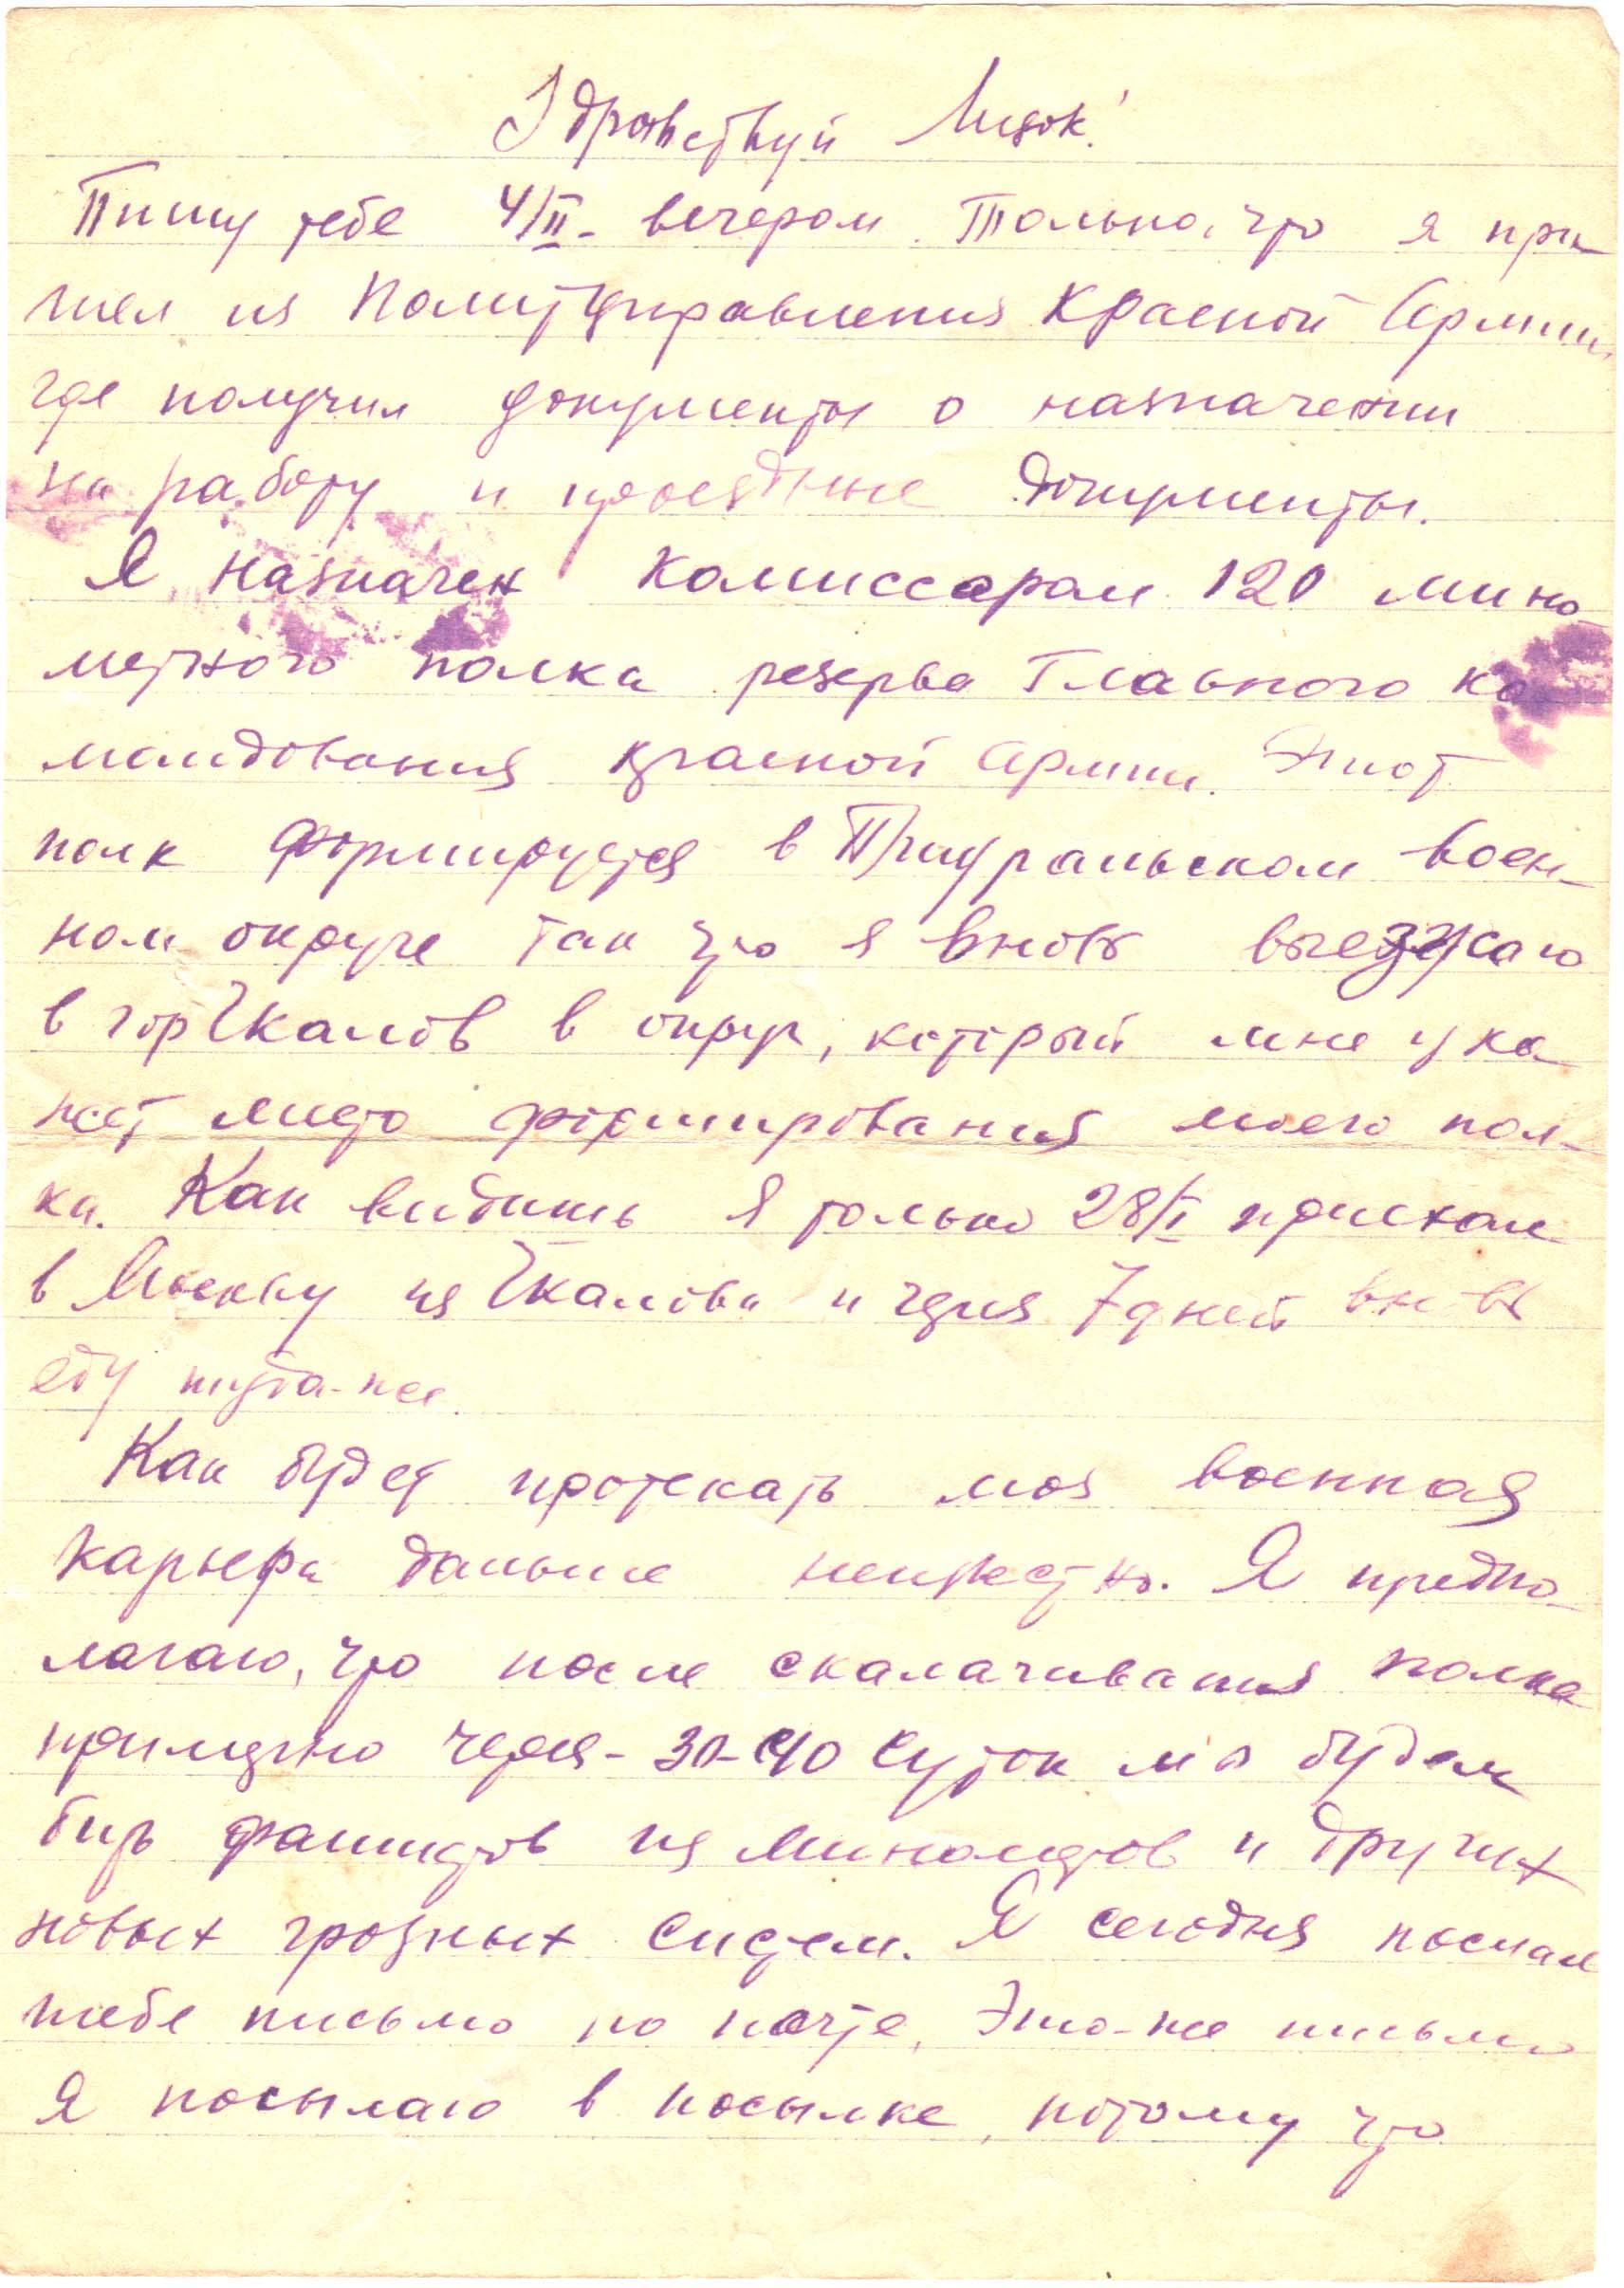 Здравствуй Лизок!
Пишу тебе 4/II - вечером. Только, что я при
шел из ПолитУправления Красной Армии,
где получил документы о назначении
на работу и проездные документы.
Я назначен Комиссаром 120 мино
метного полка резерва Главного Ко
мандования Красной Армии. Этот
полк формируется в Приуральском Воен-
ном округе так что я вновь выезжаю
в гор Чкалов в округ, который мне ука
жет место формирования моего пол-
ка. Как видишь я только 28/I приехал
в Москву из Чкалова и через 7 дней вновь
еду туда-же.
Как будет протекать моя военная
карьера дальше неизвестно. Я предпо-
лагаю, что после сколачивания полка
примерно через - 30-40 суток мы будем
бить фашистов из минометов и других
новых грозных систем. Я сегодня послал
тебе письмо по почте, Это-же письмо
я посылаю в посылке, потому что